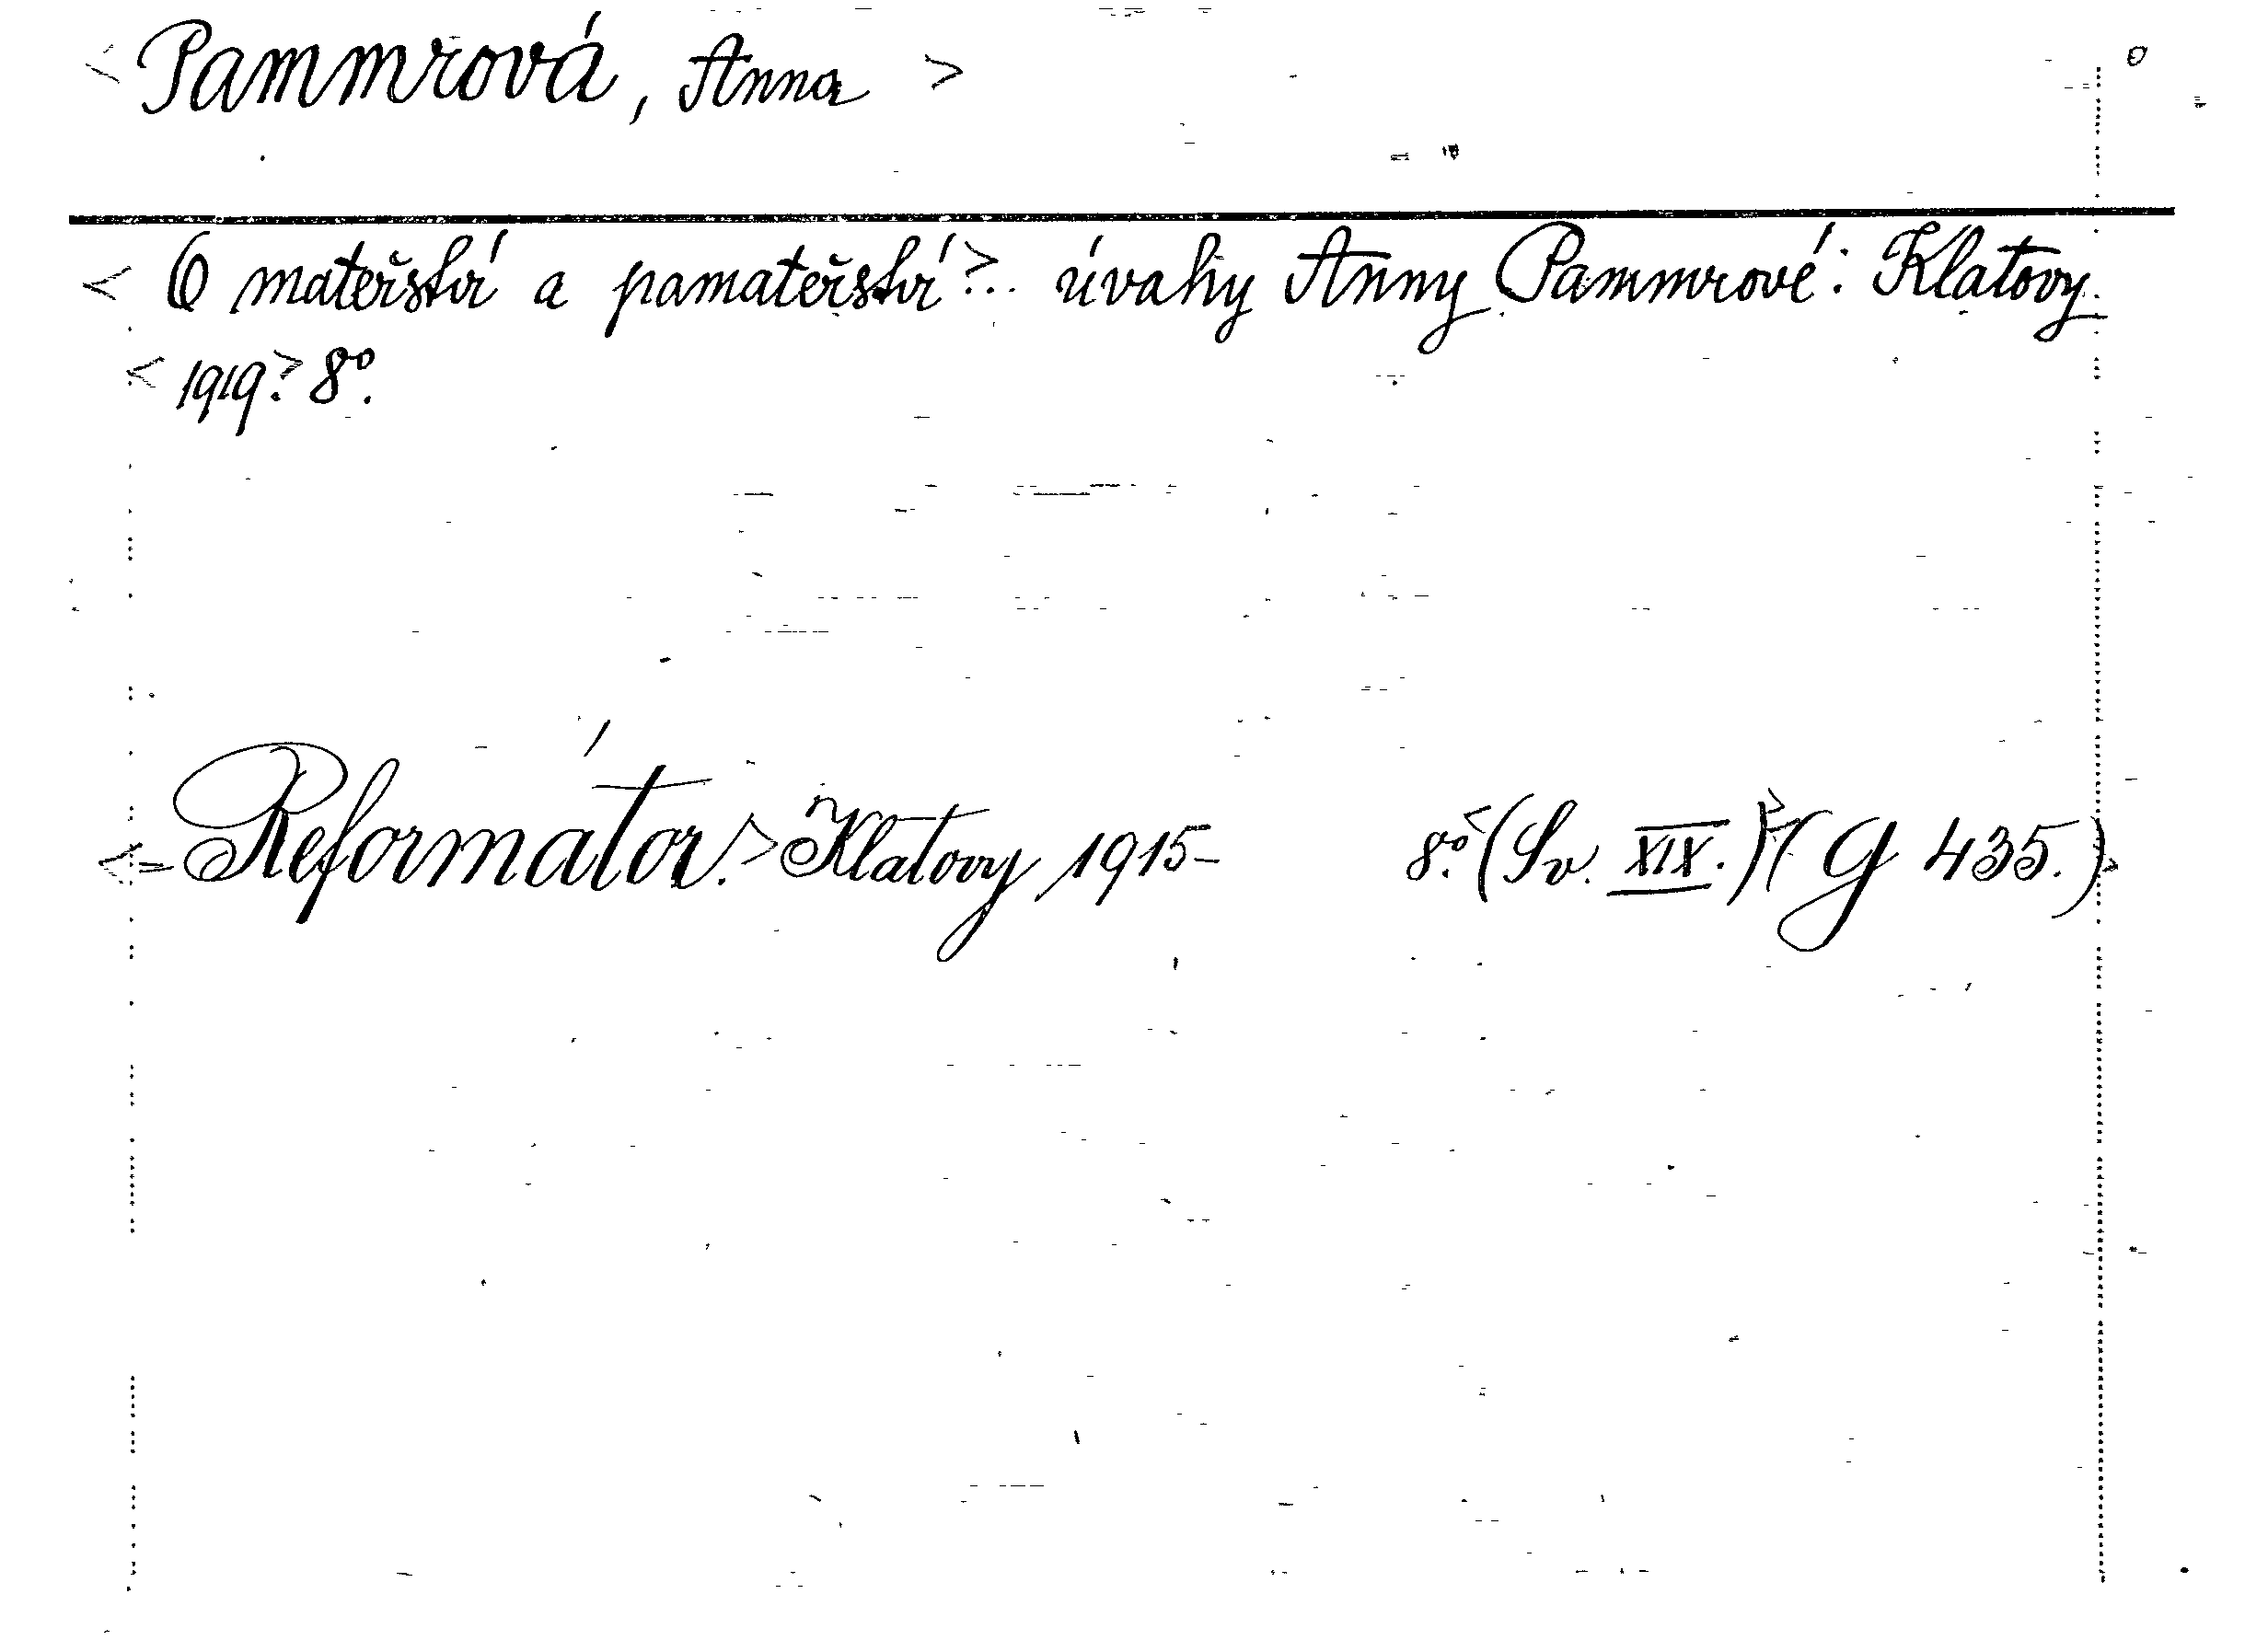 < Pammrová, Anna >
< O mateřství a pamateřství >... úvahy Anny Pammrové: Klatovy
< 1919. > 8º.
< = Reformátor. > Klatovy 1915- 8.º < (Sv. XIX.) > < (G 435.) >